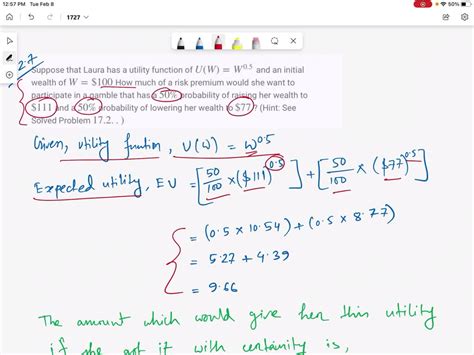 12:57 PM Tue Feb 8
50%
1727
2.7
Suppose that Laura has a utility function of U(W) = W^0.5 and an initial
wealth of W = $100 How much of a risk premium would she want to
participate in a gamble that has a 50% probability of raising her wealth to
$111 and a 50% probability of lowering her wealth to $77? (Hint: See
Solved Problem 17.2. . )
Given, utility function, U(W) = W^0.5
Expected utility, EU = [50/100 × ($111)^0.5] + [50/100 × ($77)^0.5]
= (0.5 × 10.54) + (0.5 × 8.77)
= 5.27 + 4.39
= 9.66
The amount which would give her this utility
if she got it with certainty is,